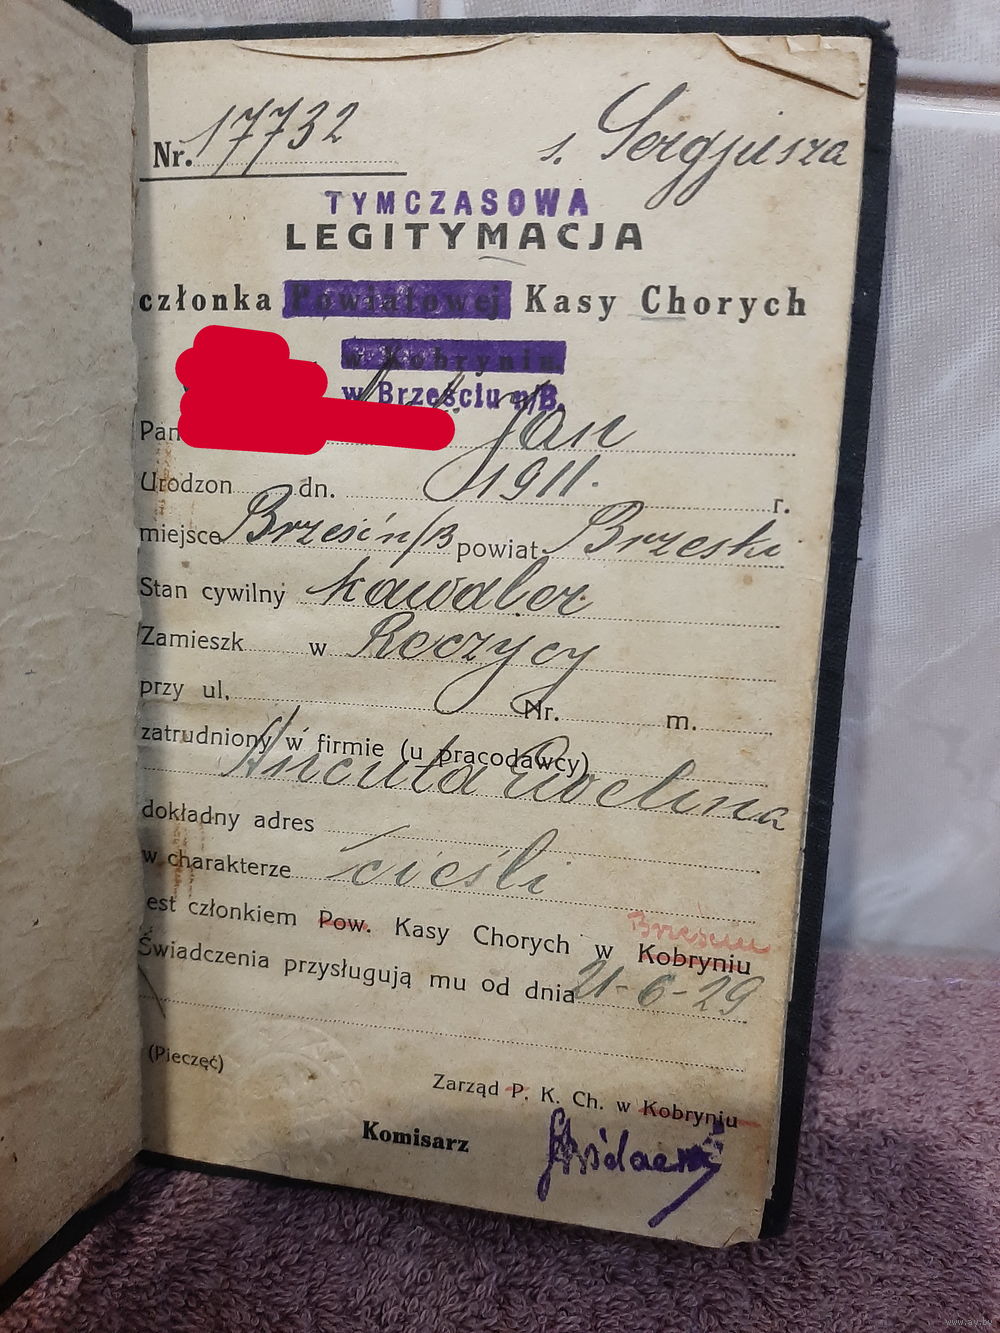 Nr. 17732
s. Sergjusza
TYMCZASOWA
LEGITYMACJA
członka Powiatowej Kasy Chorych
w Kobryniu
w Brześciu n/B.
Pan Jan
Urodzon dn. 1911. r.
miejsce Brześć n/B powiat Brzeski
Stan cywilny kawaler
Zamieszk w Reczycy
przy ul. Nr. m.
zatrudniony w firmie (u pracodawcy)
dokładny adres
w charakterze cieśli
est członkiem Pow. Kasy Chorych w Kobryniu Brześciu
Świadczenia przysługują mu od dnia 21-6-29
(Pieczęć)
Zarząd P. K. Ch. w Kobryniu
Komisarz
www.ay.by